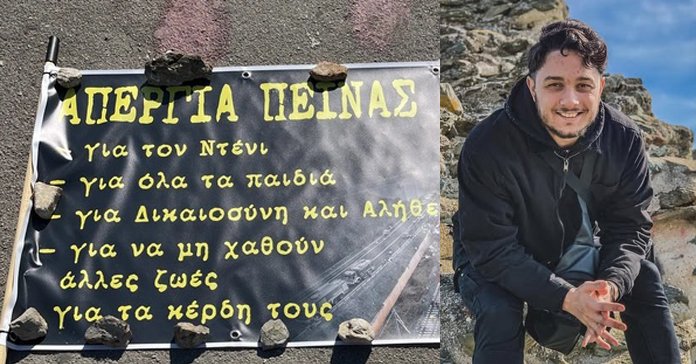 ΑΠΕΡΓΙΑ ΠΕΙΝΑΣ
- για τον Ντένι
- για όλα τα παιδιά
- για Δικαιοσύνη και Αλήθε
- για να μη χαθούν
άλλες ζωές
για τα κέρδη τους